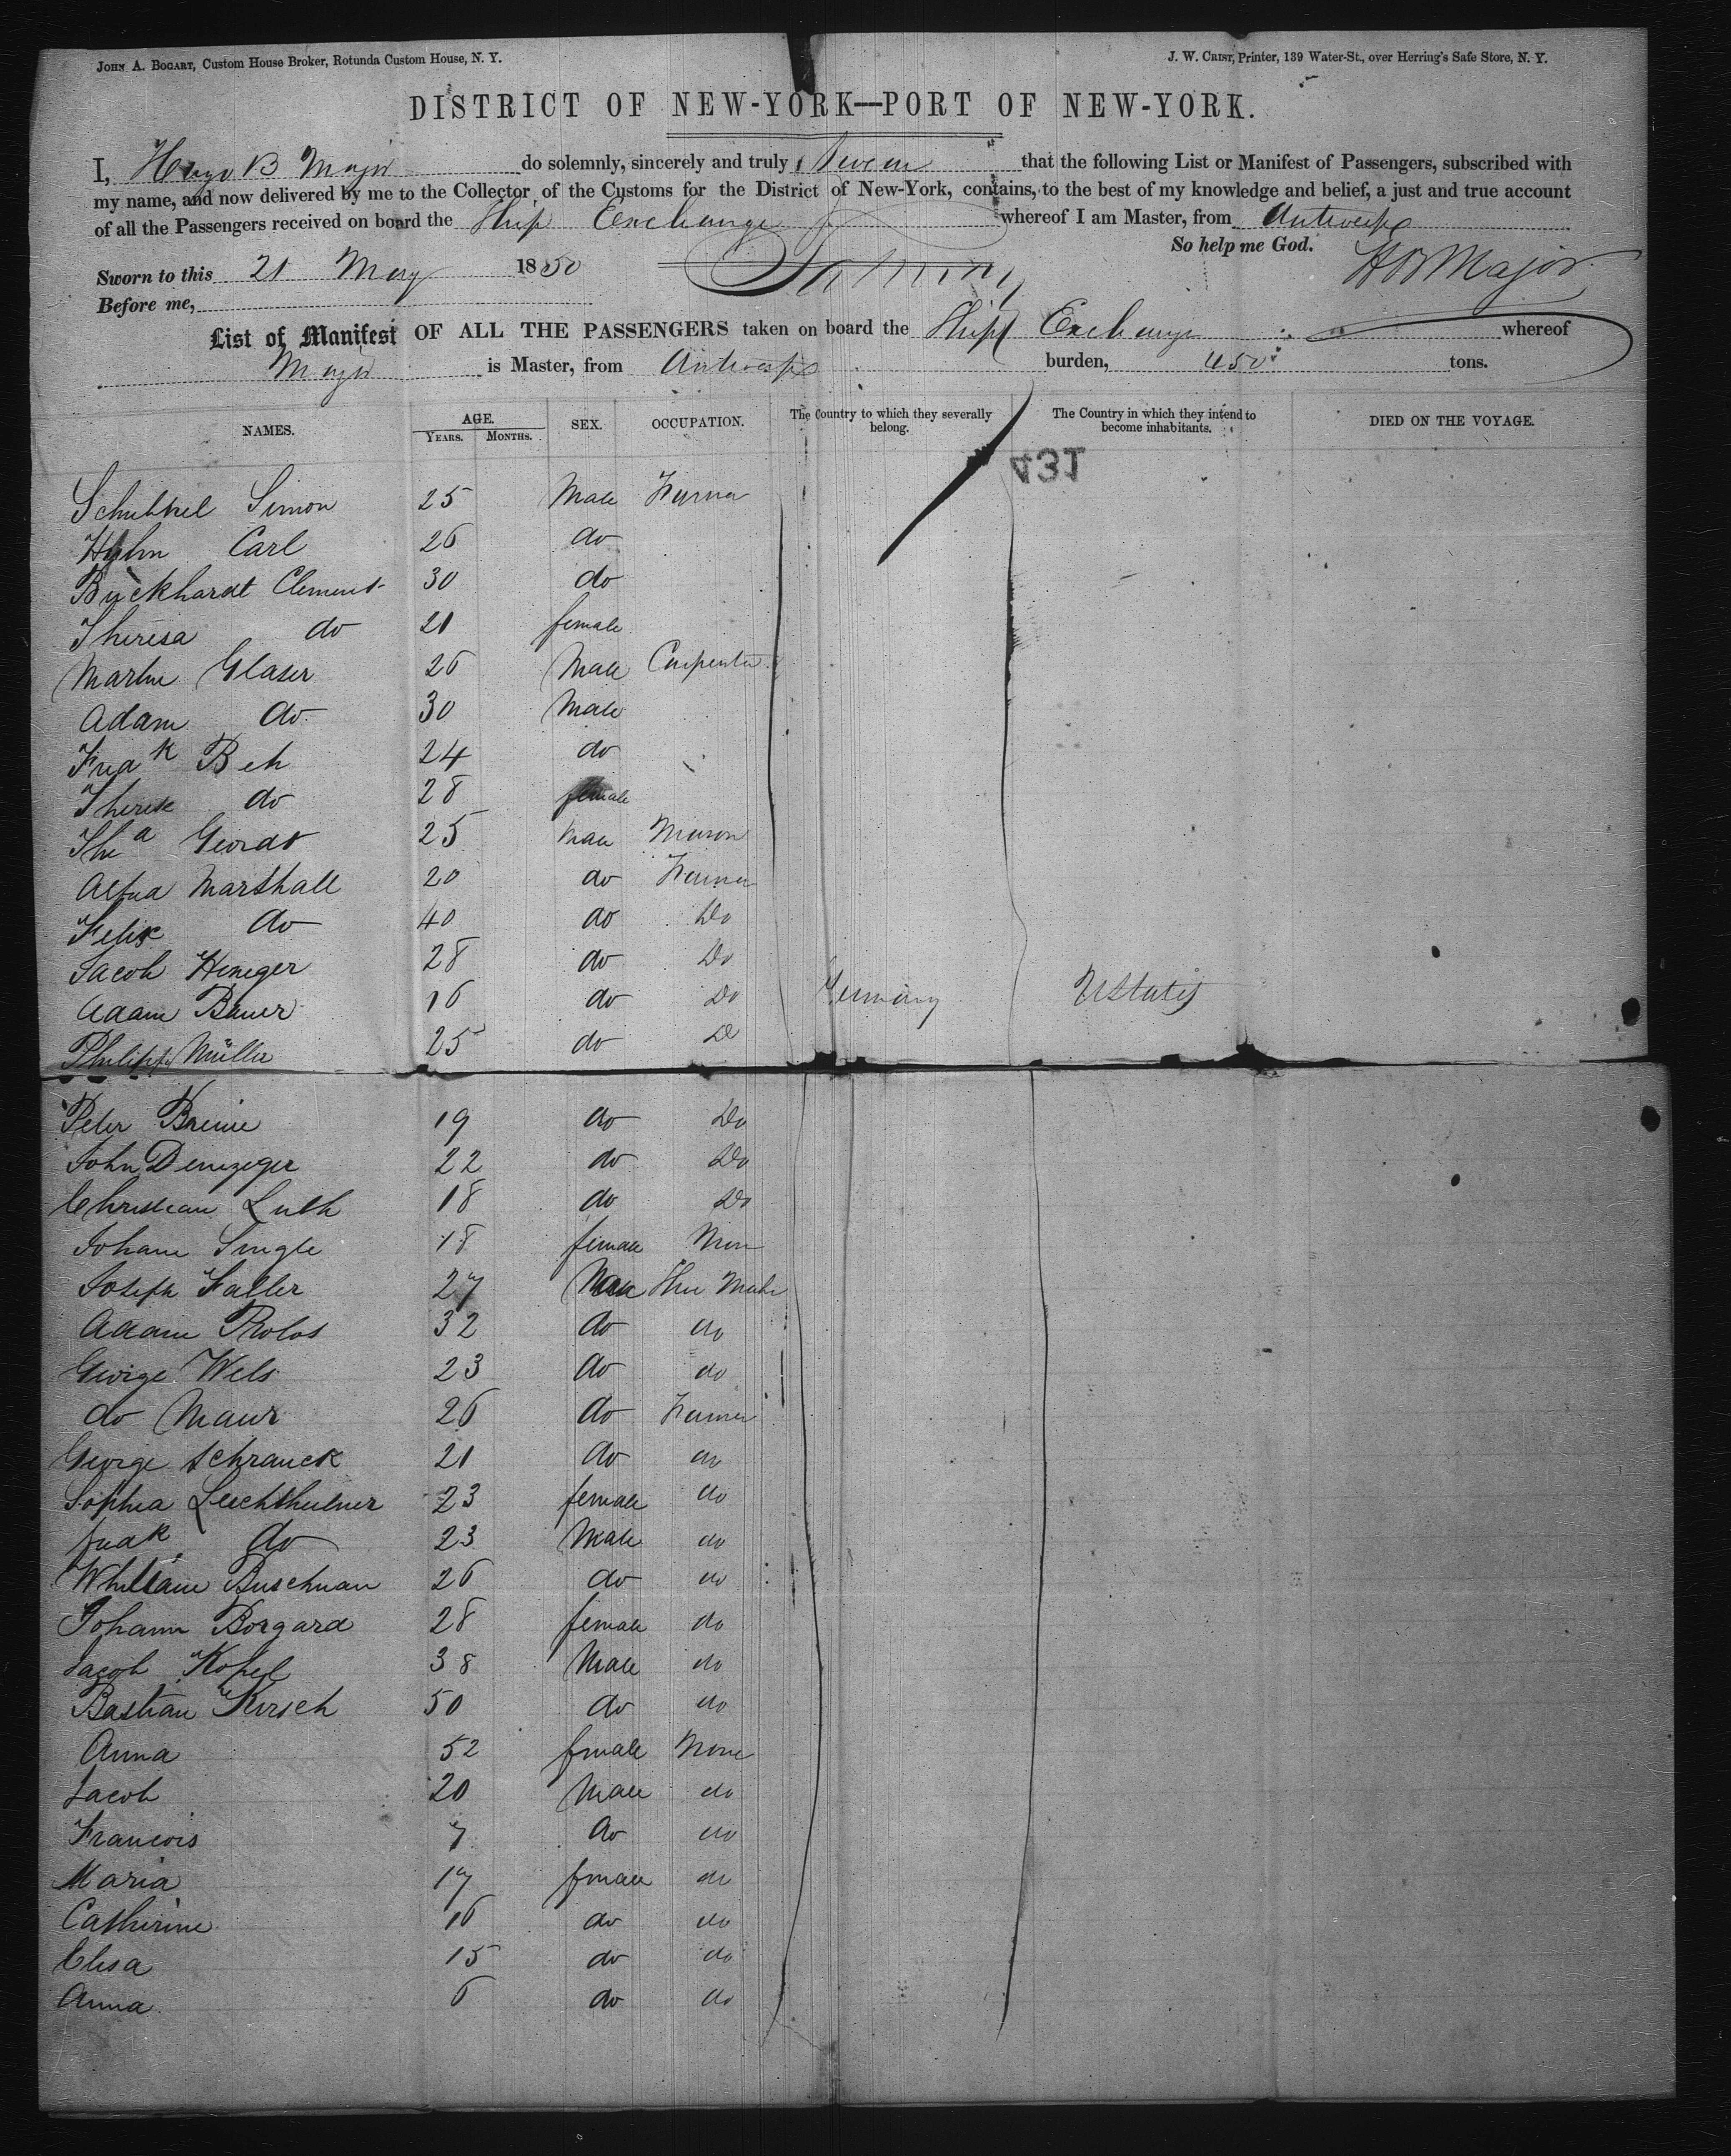 JOHN A. BOGART, Custom House Broker, Rotunda Custom House, N. Y. J. W. CRIST, Printer, 139 Water-St., over Herring's Safe Store, N. Y.
DISTRICT OF NEW-YORK—PORT OF NEW-YORK.
I, B Major do solemnly, sincerely and truly Swear that the following List or Manifest of Passengers, subscribed with
my name, and now delivered by me to the Collector of the Customs for the District of New-York, contains, to the best of my knowledge and belief, a just and true account
of all the Passengers received on board the Ship Exchange whereof I am Master, from Antwerp
So help me God.
Sworn to this 21 May 1850 H B Major
Before me,
List of Manifest OF ALL THE PASSENGERS taken on board the Ship Exchange whereof
Major is Master, from Antwerp burden, 450 tons.
NAMES. AGE. SEX. OCCUPATION. The Country to which they severally belong. The Country in which they intend to become inhabitants. DIED ON THE VOYAGE.
YEARS. MONTHS.
431
Simon 25 Male Farmer
Carl 26 do
Buckhardt Clement 30 do
Theresa do 21 female
Martin Glaser 26 Male Carpenter
Adam do 30 Male
Fredk Beh 24 do
do 28 female
25 Male Mason
Marshall 20 do Farmer
Felix do 40 do Do
Jacob Heneger 28 do Do
Adam Bauer 16 do Do Germany UStates
Philipp Müller 25 do Do
Peter 19 do Do
John Denzeger 22 do Do
Christian Luth 18 do Do
Johann Single 18 female None
Joseph Faller 27 Male Shoe Maker
Adam Rolos 32 do do
George Wels 23 do do
do Maur 26 do Farmer
George Schranck 21 do do
Sophia 23 female do
fredk do 23 Male do
William Buschman 26 do do
Johann Borgard 28 female do
Jacob Kopel 38 Male do
Bastian Kirsch 50 do do
Anna 52 female None
Jacob 20 Male do
Francois 7 do do
Maria 17 female do
Catherine 16 do do
Elisa 15 do do
Anna 6 do do